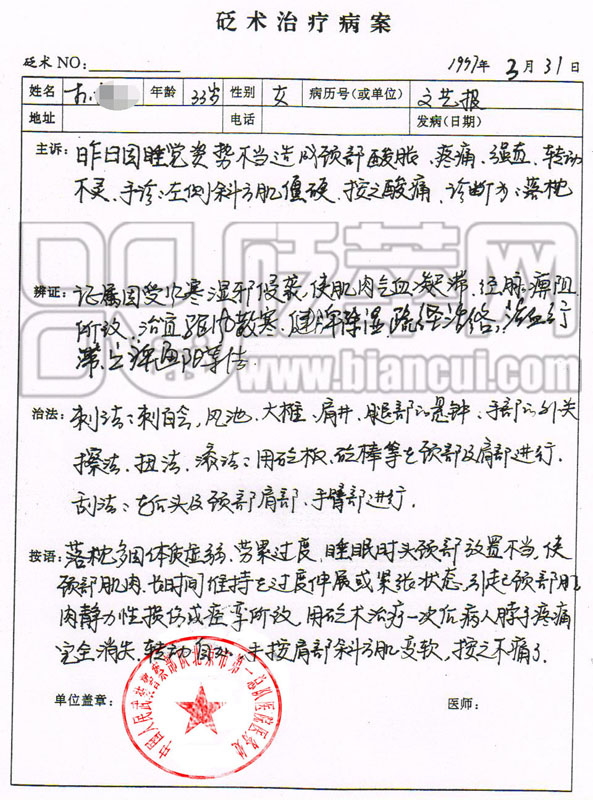 砭术治疗病案
砭术 NO: 1997年 3月 31日
姓名 年龄 33岁 性别 女 病历号(或单位) 文艺报
地址 电话 发病(日期)
主诉: 昨日因睡觉姿势不当造成颈部酸胀、疼痛、强直、转动
不灵、手诊:左侧斜方肌僵硬、按之酸痛、诊断为:落枕
辨证: 证属因受风寒湿邪侵袭,使肌肉气血凝滞、经脉痹阻
所致、治宜驱风散寒、健脾除湿、疏经活络,活血行
滞、通阳等法.
治法: 刺法:刺百会,风池、大椎、肩井、腿部的悬钟、手部的外关
擦法、扭法、滚法:用砭板、砭棒等在颈部及肩部进行.
刮法:在后头及颈部肩部、手臂部进行.
按语: 落枕多因体质虚弱、劳累过度、睡眠时头颈部放置不当,使
颈部肌肉长时间维持在过度伸展或紧张状态,引起颈部肌
肉静力性损伤或痉挛所致,用砭术治疗一次后病人脖子疼痛
完全消失、转动自如、手按肩部斜方肌变软,按之不痛了.
单位盖章: 医师:
中国人民武装警察部队北京市第一总队医院医务处
砭萃网
www.biancui.com